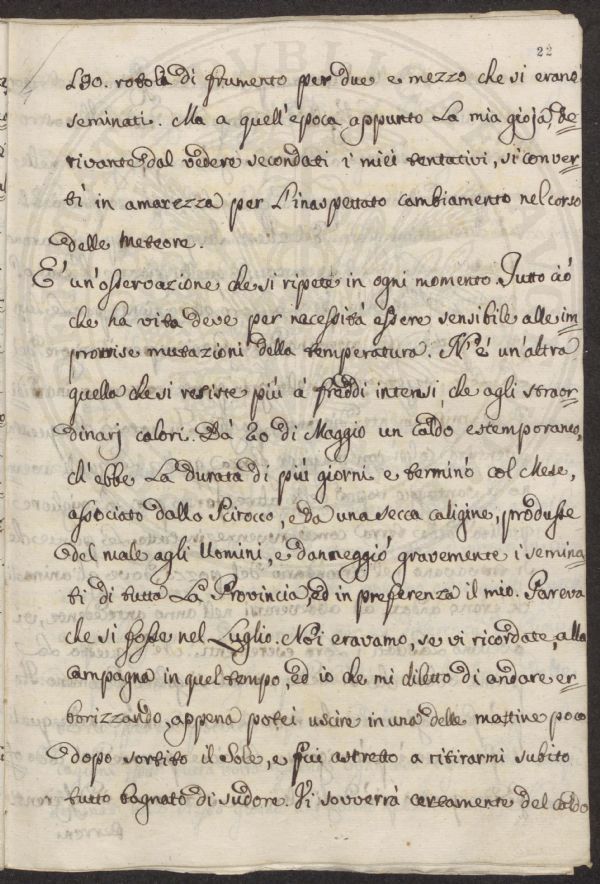 22
190. rotola di frumento per due e mezzo che si erano
seminati. Ma a quell'epoca appunto La mia gioja, de-
rivante dal vedere secondati i miei tentativi, si conver-
tì in amarezza per L'inaspettato cambiamento nel corso
delle Meteore.
E' un'osservazione che si ripete in ogni momento. Tutto ciò
che ha vita deve per necessità essere sensibile alle im-
provvise mutazioni della temperatura. N'è un'altra
quella che si resiste più à freddi intensi, che agli straor-
dinarj calori. Dà 20 di Maggio un Caldo estemporaneo,
ch'ebbe La durata di più giorni e terminò col Mese,
associato dallo Scirocco, e da una secca caligine, produsse
del male agli Uomini, e danneggiò gravemente i semina-
ti di tutta La Provincia, ed in preferenza il mio. Pareva
che si fosse nel Luglio. Noi eravamo, se vi ricordate, alla
Campagna in quel tempo, ed io che mi diletto di andare er-
borizzando, appena potei uscire in una delle mattine poco
dopo sortito il Sole, e fui astretto a ritirarmi subito
tutto bagnato di sudore. Vi sovverrà certamente del caldo